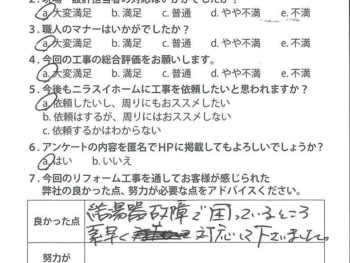 a.大変満足 b.満足 c.普通 d.やや不満 e.不満
3.職人のマナーはいかがでしたか？
a.大変満足 b.満足 c.普通 d.やや不満 e.不満
4.今回の工事の総合評価をお願いします。
a.大変満足 b.満足 c.普通 d.やや不満 e.不満
5.今後もニラスイホームに工事を依頼したいと思われますか？
a.依頼したいし、周りにもおススメしたい
b.依頼はするが、周りにはおススメしない
c.依頼するかはわからない
6.アンケートの内容を匿名でHPに掲載してもよろしいでしょうか？
a.はい b.いいえ
7.今回のリフォーム工事を通してお客様が感じられた
弊社の良かった点、努力が必要な点をアドバイスください。
良かった点
給湯器故障で困っているところ
素早く 対応して下さいました。
努力が